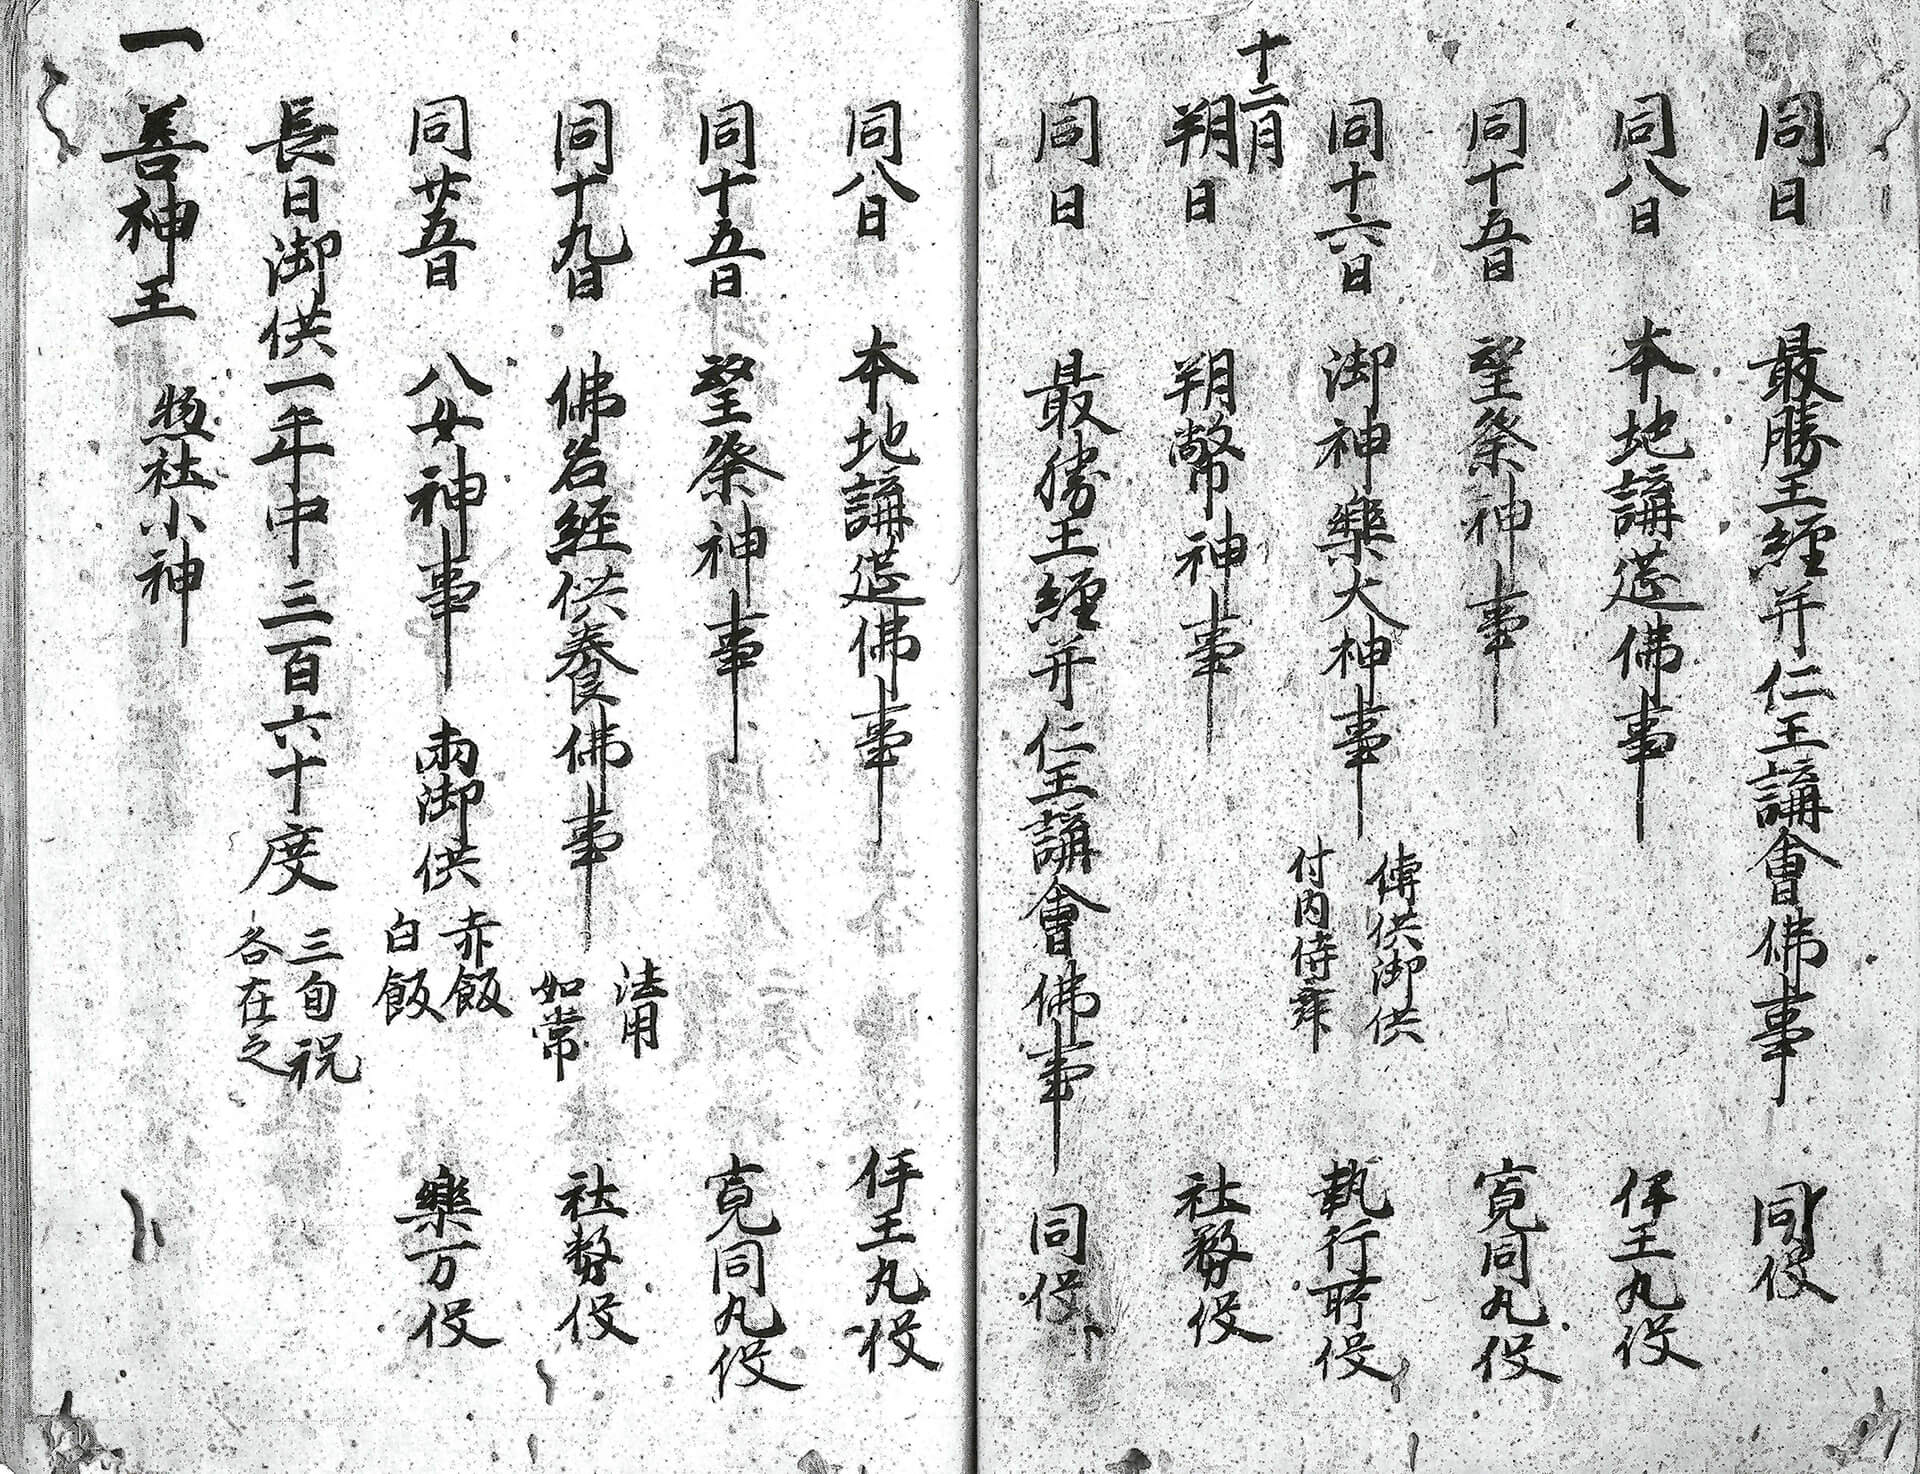 同日　最勝王経并仁王講會佛事　同役
同八日　本地講莚佛事　伊王丸役
同十五日　望祭神事　寛同丸役
同十六日　御神樂大神事　傳供御供　付内侍舞　執行所役
十二月
朔日　朔幣神事　社務役
同日　最勝王経并仁王講會佛事　同役
同八日　本地講莚佛事　伊王丸役
同十五日　望祭神事　寛同丸役
同十九日　佛名経供養佛事　法用如常　社務役
同廿五日　八女神事　両御供　赤飯　白飯　樂万役
長日御供一年中三百六十度　三旬祝　各在之
一善神王　惣社小神